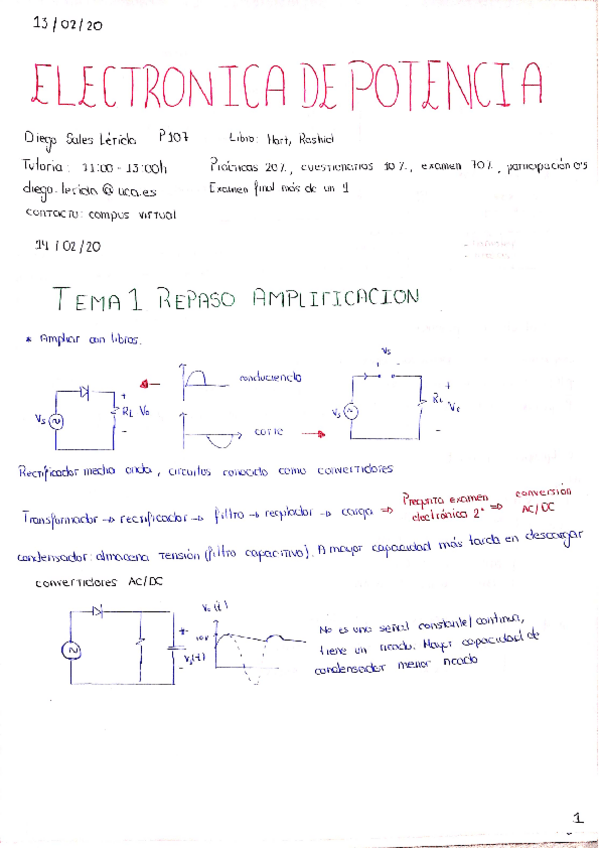 13/02/20
ELECTRONICA DE POTENCIA
Diego Sales Lérida P107 Libro: Hart, Rashid
Tutoria: 11:00 - 13:00h Prácticas 20%, cuestionarios 10%, examen 70%, participación 0'5
diego.lerida@uca.es Examen final más de un 1
contacto: campus virtual
14/02/20
TEMA 1 REPASO AMPLIFICACION
* Ampliar con libros.
Vs
conduciendo
Vs RL Vo + -
corte
Vs RL + -
Rectificador media onda, circuitos conocido como convertidores
Transformador → rectificador → filtro → regulador → carga ⇒ Pregunta examen electrónica 2º ⇒ conversión AC/DC
condensador: almacena tensión (filtro capacitivo). A mayor capacidad más tarda en descargar
convertidores AC/DC
Vo(t)
10V
+ -
No es una señal constante/continua,
tiene un rizado. Mayor capacidad de
condensador menor rizado
1